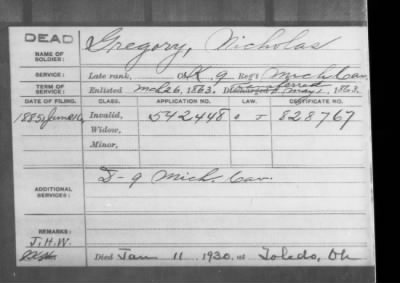 DEAD
NAME OF SOLDIER: Gregory, Nicholas
SERVICE: Late rank, Co. K, 9 Reg't Mich Cav
TERM OF SERVICE: Enlisted Mch 26, 1863. Discharged May 1, 1863.
Transferred
DATE OF FILING. CLASS. APPLICATION NO. LAW. CERTIFICATE NO.
1885 June 16 Invalid, 542448 J 828767
Widow,
Minor,
ADDITIONAL SERVICES: D-9 Mich. Cav.
REMARKS:
J.H.W.
Died Jan 11 1930, at Toledo, Oh